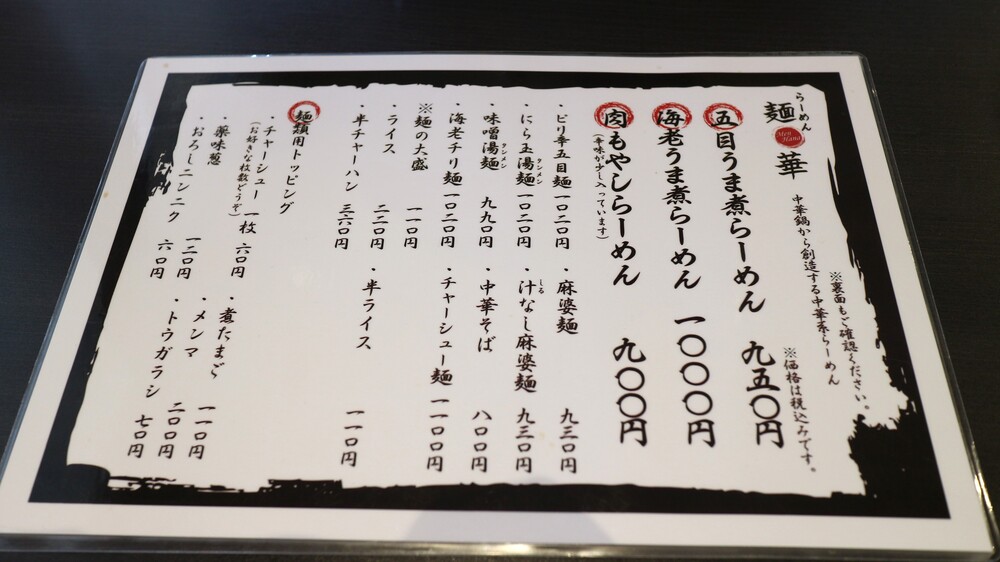 らーめん
麺華
Men Hana
中華鍋から創造する中華系らーめん
※裏面もご確認ください。
※価格は税込みです。
五目うま煮らーめん 九五〇円
海老うま煮らーめん 一〇〇〇円
肉もやしらーめん 九〇〇円
(辛味が少し入っています)
・ピリ辛五目麺 一〇二〇円
・麻婆麺 九三〇円
・にら玉湯麺 一〇二〇円
タンメン
・汁なし麻婆麺 九三〇円
しる
・味噌湯麺 九九〇円
タンメン
・中華そば 八〇〇円
・海老チリ麺 一〇二〇円
・チャーシュー麺 一一〇〇円
※麺の大盛 一一〇円
・ライス 二二〇円
・半チャーハン 三六〇円
・半ライス 一一〇円
麺類用トッピング
・チャーシュー 一枚 六〇円
(お好きな枚数どうぞ)
・煮たまご 一一〇円
・薬味葱 一二〇円
・メンマ 二〇〇円
・おろしニンニク 六〇円
・トウガラシ 七〇円